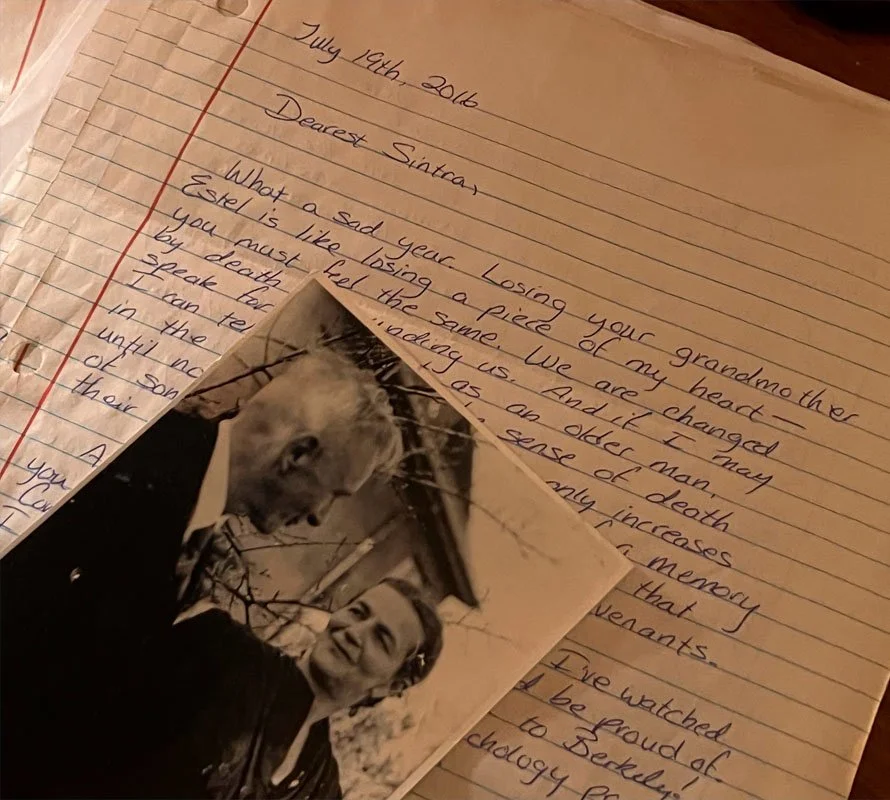 July 19th, 2016
Dearest Sintra,
What a sad year. Losing your grandmother
Estel is like losing a piece of my heart—
you must feel the same. We are changed
by death inding us. And if I may
speak for as an older man,
I can tel sense of death
in the only increases
until no a memory
of son that
their venants.
A I've watched
you d be proud of.
Car to Berkely!
I chology pr